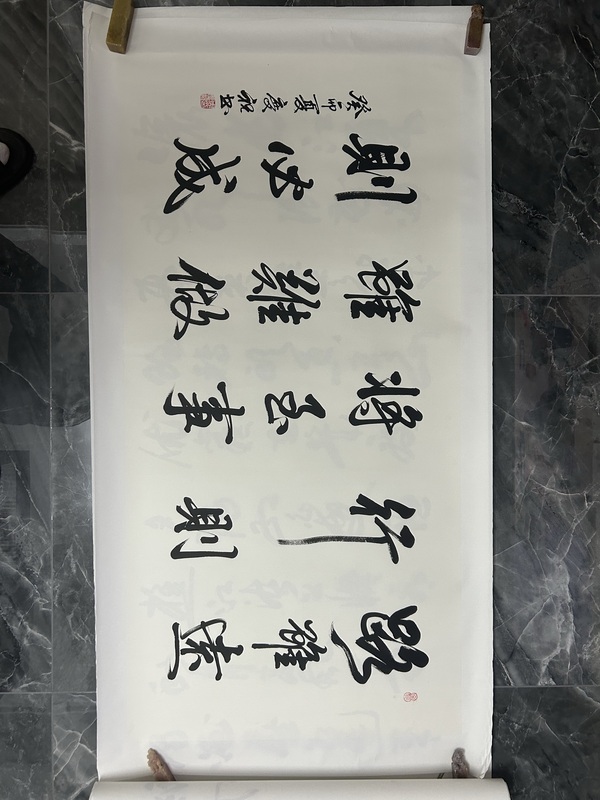 路雖遠
行則
將至事
雖難做
則必成
癸卯夏慶